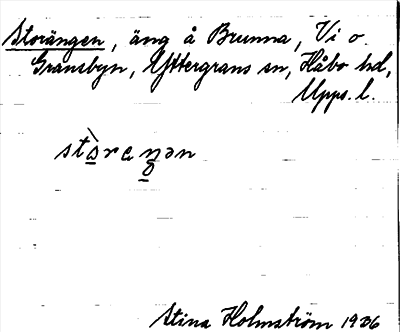 Storängen, äng å Brunna, Vi o.
Gransbyn, Yttergrans sn, Håbo hd,
Upps. l.
Stina Holmström 1936